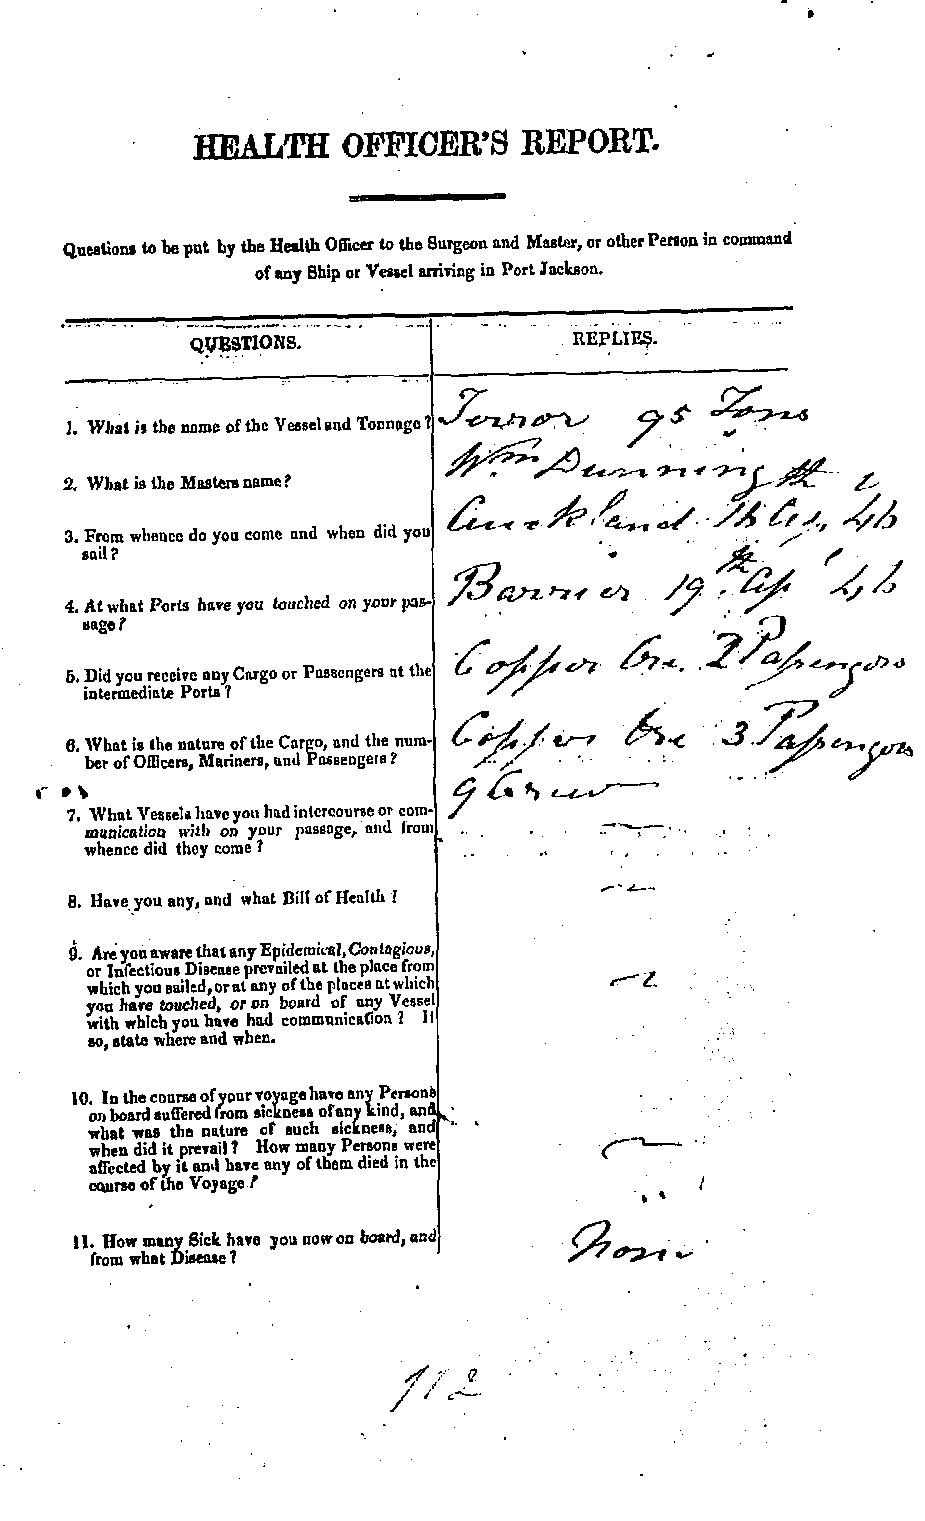 HEALTH OFFICER'S REPORT.
Questions to be put by the Health Officer to the Surgeon and Master, or other Person in command
of any Ship or Vessel arriving in Port Jackson.
QUESTIONS.
REPLIES.
1. What is the name of the Vessel and Tonnage?
Terror 95 Tons
2. What is the Masters name?
Wm Dunning
3. From whence do you come and when did you
sail?
Auckland 1th Ap, 46
4. At what Ports have you touched on your pas-
sage?
Barrier 19th Ap' 46
5. Did you receive any Cargo or Passengers at the
intermediate Ports?
Copper Ore. 2 Passengers
6. What is the nature of the Cargo, and the num-
ber of Officers, Mariners, and Passengers?
Copper Ore 3 Passengers
9 Crew
7. What Vessels have you had intercourse or com-
munication with on your passage, and from
whence did they come?
8. Have you any, and what Bill of Health?
9. Are you aware that any Epidemical, Contagious,
or Infectious Disease prevailed at the place from
which you sailed, or at any of the places at which
you have touched, or on board of any Vessel
with which you have had communication? If
so, state where and when.
10. In the course of your voyage have any Persons
on board suffered from sickness of any kind, and
what was the nature of such sickness, and
when did it prevail? How many Persons were
affected by it and have any of them died in the
course of the Voyage?
11. How many Sick have you now on board, and
from what Disease?
None
112